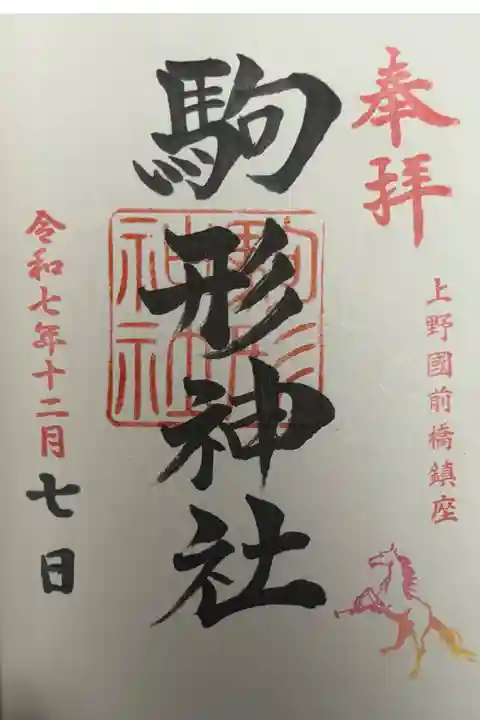 奉拝
上野國前橋鎮座
駒形神社
駒形
神社
令和七年十二月七日